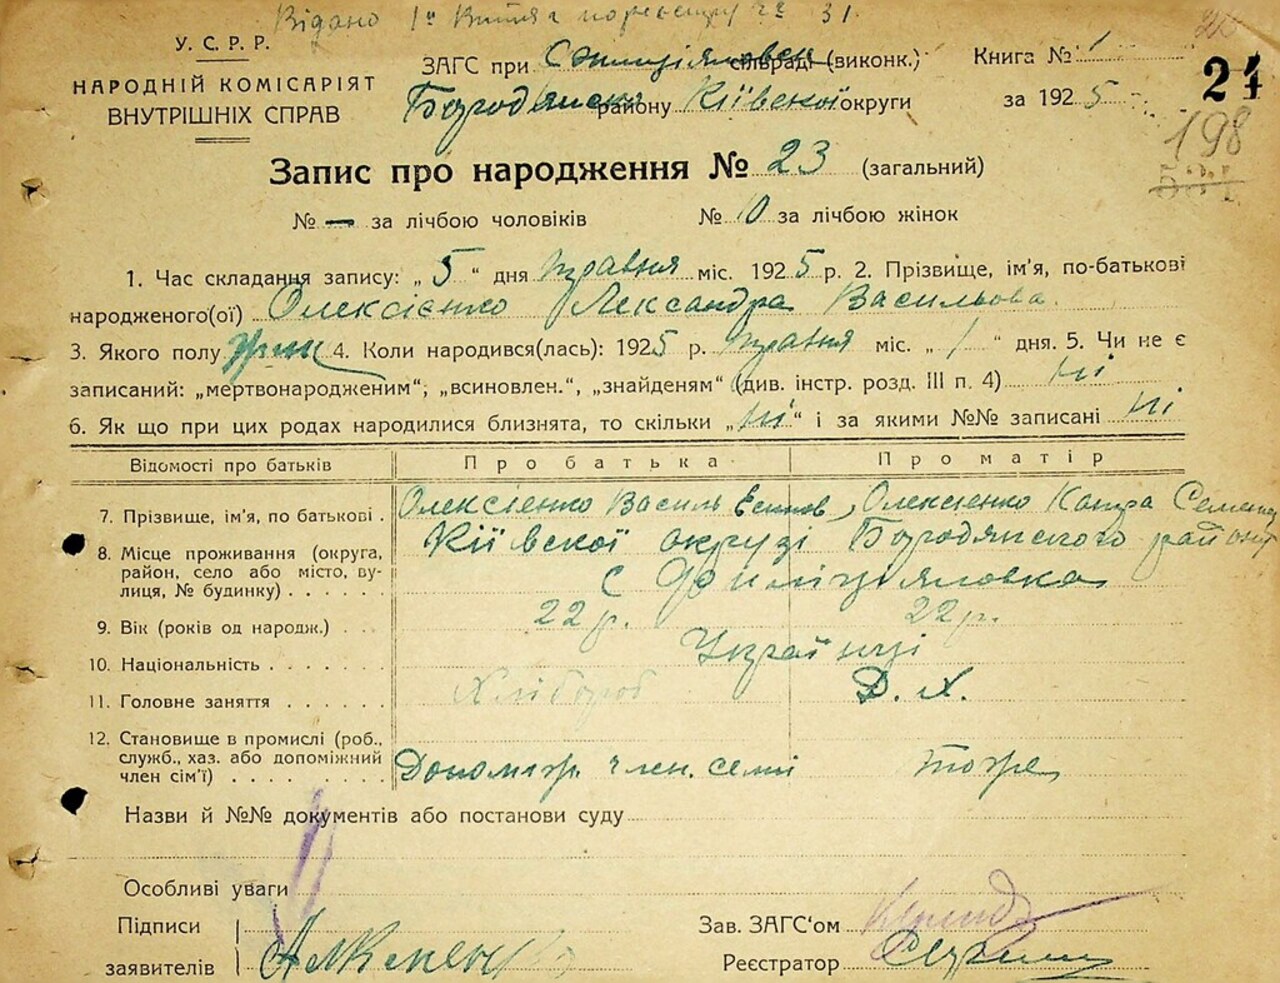 Видано 1й Витяг
У. С. Р. Р.
НАРОДНІЙ КОМІСАРІЯТ
ВНУТРІШНІХ СПРАВ
ЗАГС при сільраді (виконк.)
Бородянск району Київскої округи
Книга № 1
за 1925
24
198
Запис про народження № 23 (загальний)
№ — за лічбою чоловіків № 10 за лічбою жінок
1. Час складання запису: „5“ дня травня міс. 1925 р. 2. Прізвище, ім’я, по-батькові
народженого(ої) Олексієнко Лександра Васильова
3. Якого полу жін 4. Коли народився(лась): 1925 р. травня міс. „1“ дня. 5. Чи не є
записаний: „мертвонародженим“, „всиновлен.“, „знайденям“ (див. інстр. розд. III п. 4) ні
6. Як що при цих родах народилися близнята, то скільки „ні“ і за якими №№ записані ні
Відомості про батьків Про батька Про матір
7. Прізвище, ім’я, по батькові . Олексієнко Василь , Олексієнко Семен
8. Місце проживання (округа, Київскої округі Бородянского району
район, село або місто, ву- с Филіціяловка
лиця, № будинку) . . . . . .
9. Вік (років од народж.) . . 22 р. 22 р.
10. Національність . . . . . . . Українці
11. Головне заняття . . . . . . Хлібороб Д. Х.
12. Становище в промислі (роб.,
служб., хаз. або допоміжний
член сім’ї) . . . . . . . . Допомаг. член. семі тоже
Назви й №№ документів або постанови суду
Особливі уваги
Підписи
заявителів
Зав. ЗАГС‘ом
Реєстратор